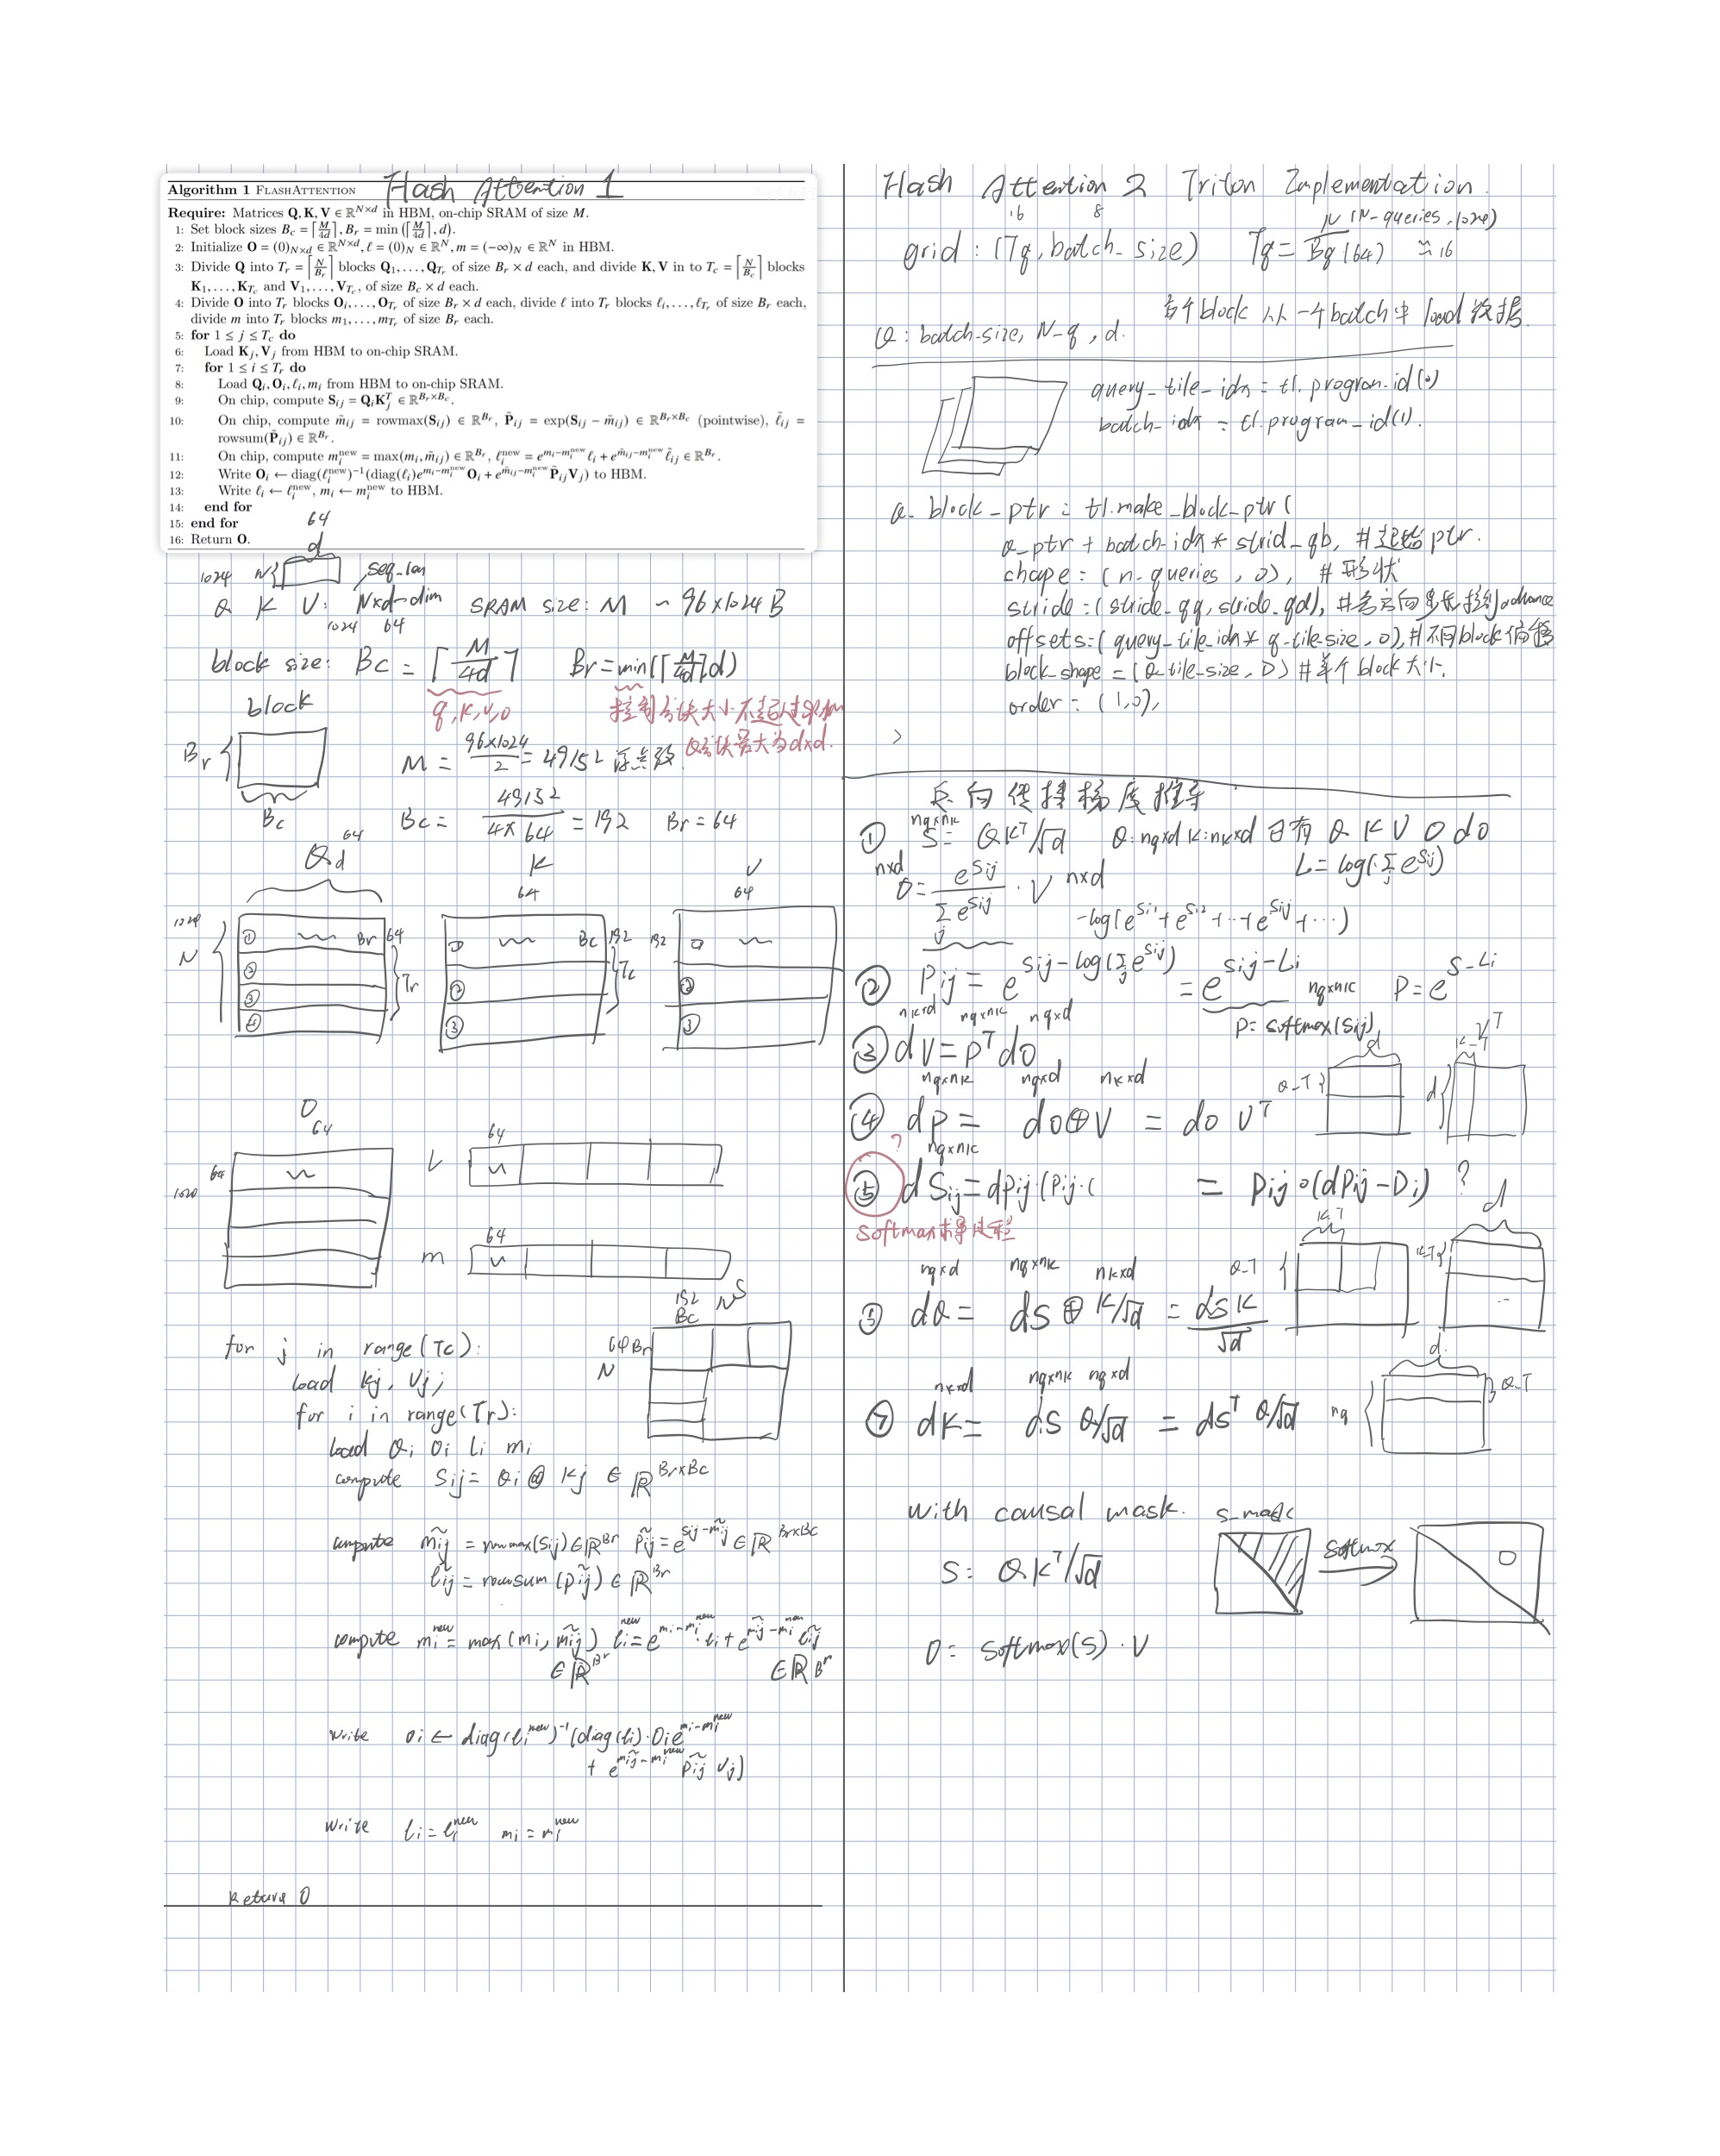 Flash Attention 1
Algorithm 1 FLASHATTENTION
Require: Matrices Q, K, V ∈ ℝ^{N×d} in HBM, on-chip SRAM of size M.
1: Set block sizes B_c = ⌈M/4d⌉, B_r = min(⌈M/4d⌉, d).
2: Initialize O = (0)_{N×d} ∈ ℝ^{N×d}, ℓ = (0)_N ∈ ℝ^N, m = (−∞)_N ∈ ℝ^N in HBM.
3: Divide Q into T_r = ⌈N/B_r⌉ blocks Q_1, …, Q_{T_r} of size B_r × d each, and divide K, V in to T_c = ⌈N/B_c⌉ blocks
K_1, …, K_{T_c} and V_1, …, V_{T_c}, of size B_c × d each.
4: Divide O into T_r blocks O_i, …, O_{T_r} of size B_r × d each, divide ℓ into T_r blocks ℓ_i, …, ℓ_{T_r} of size B_r each,
divide m into T_r blocks m_1, …, m_{T_r} of size B_r each.
5: for 1 ≤ j ≤ T_c do
6: Load K_j, V_j from HBM to on-chip SRAM.
7: for 1 ≤ i ≤ T_r do
8: Load Q_i, O_i, ℓ_i, m_i from HBM to on-chip SRAM.
9: On chip, compute S_ij = Q_i K_j^T ∈ ℝ^{B_r×B_c}.
10: On chip, compute m̃_ij = rowmax(S_ij) ∈ ℝ^{B_r}, P̃_ij = exp(S_ij − m̃_ij) ∈ ℝ^{B_r×B_c} (pointwise), ℓ̃_ij =
rowsum(P̃_ij) ∈ ℝ^{B_r}.
11: On chip, compute m_i^new = max(m_i, m̃_ij) ∈ ℝ^{B_r}, ℓ_i^new = e^{m_i−m_i^new} ℓ_i + e^{m̃_ij−m_i^new} ℓ̃_ij ∈ ℝ^{B_r}.
12: Write O_i ← diag(ℓ_i^new)^{−1}(diag(ℓ_i)e^{m_i−m_i^new} O_i + e^{m̃_ij−m_i^new} P̃_ij V_j) to HBM.
13: Write ℓ_i ← ℓ_i^new, m_i ← m_i^new to HBM.
14: end for
15: end for
16: Return O.
64
d
1024 N seq-len
Q K V: N×d-dim SRAM size: M ~ 96×1024 B
1024 64
block size: Bc = ⌈M/4d⌉ Br = min(⌈M/4d⌉, d)
q, k, v, o 控制分块大小不超过SRAM
block Q分块最大为d×d.
Br M = 96×1024/2 = 49152 浮点数
Bc Bc = 49152/(4×64) = 192 Br = 64
64
Q d K V
64 64
1024 ① Br 64 ① Bc 192 192 ①
N ② Tr ② Tc ②
③ ③ ③
④
O
64
64 64
1024 L
64
m
192
Bc N S
64 Br
N
for j in range(Tc):
load Kj, Vj;
for i in range(Tr):
load Qi Oi Li mi
compute Sij = Qi @ Kj ∈ ℝ^{Br×Bc}
compute m̃ij = rowmax(Sij) ∈ ℝ^{Br} p̃ij = e^{Sij−m̃ij} ∈ ℝ^{Br×Bc}
ℓ̃ij = rowsum(p̃ij) ∈ ℝ^{Br}
compute mi^new = max(mi, m̃ij) ℓi^new = e^{mi−mi^new}·ℓi + e^{m̃ij−mi^new} ℓ̃ij
∈ ℝ^{Br} ∈ ℝ^{Br}
write Oi ← diag(ℓi^new)^{-1}(diag(ℓi)·Oi e^{mi−mi^new}
+ e^{m̃ij−mi^new} p̃ij Vj)
write ℓi = ℓi^new mi = mi^new
Return O
Flash Attention 2 Triton Implementation.
16 8 N (N-queries, 1024)
grid: (Tq, batch_size) Tq = N/Bq (64) ≈ 16
每个block 从一个batch中 load 数据.
Q: batch-size, N-q, d.
query_tile_idx = tl.program_id(0)
batch_idx = tl.program_id(1).
Q_block_ptr = tl.make_block_ptr(
Q_ptr + batch_idx * strid_qb, #起始ptr.
shape = (n_queries, D), #形状
stride = (stride_qq, stride_qd), #各方向步长控制advance
offsets = (query_tile_idx * q_tile_size, 0), #不同block偏移
block_shape = (Q_tile_size, D) #单个block大小.
order = (1,0),
)
反向传播梯度推导
nq×nk
① S = QK^T/√d Q: nq×d K: nk×d 已有 Q K V O do
L = log(Σ_j e^{Sij})
n×d O = e^{Sij}/Σ_j e^{Sij} · V n×d
-log(e^{Si1} + e^{Si2} + … + e^{Sij} + …)
② Pij = e^{Sij − log(Σ_j e^{Sij})} = e^{Sij−Li} nq×nk P = e^{S−Li}
P = softmax(Sij)
nk×d nq×nk nq×d
③ dV = P^T do
d V^T
K_T
nq×nk nq×d nk×d Q_T d
④ dp = do⊕V = do V^T
? nq×nk
⑤ dSij = dPij·(Pij·( = Pij∘(dPij−Di) ?
softmax求导过程
d
K_T
nq×d nq×nk nk×d Q_T K_T
⑤ dQ = dS ⊕ K/√d = dS K/√d
d.
nk×d nq×nk nq×d Q_T
⑦ dK = dS Q/√d = dS^T Q/√d nq
with causal mask. S_mask
S: QK^T/√d softmax 0
O = softmax(S)·V